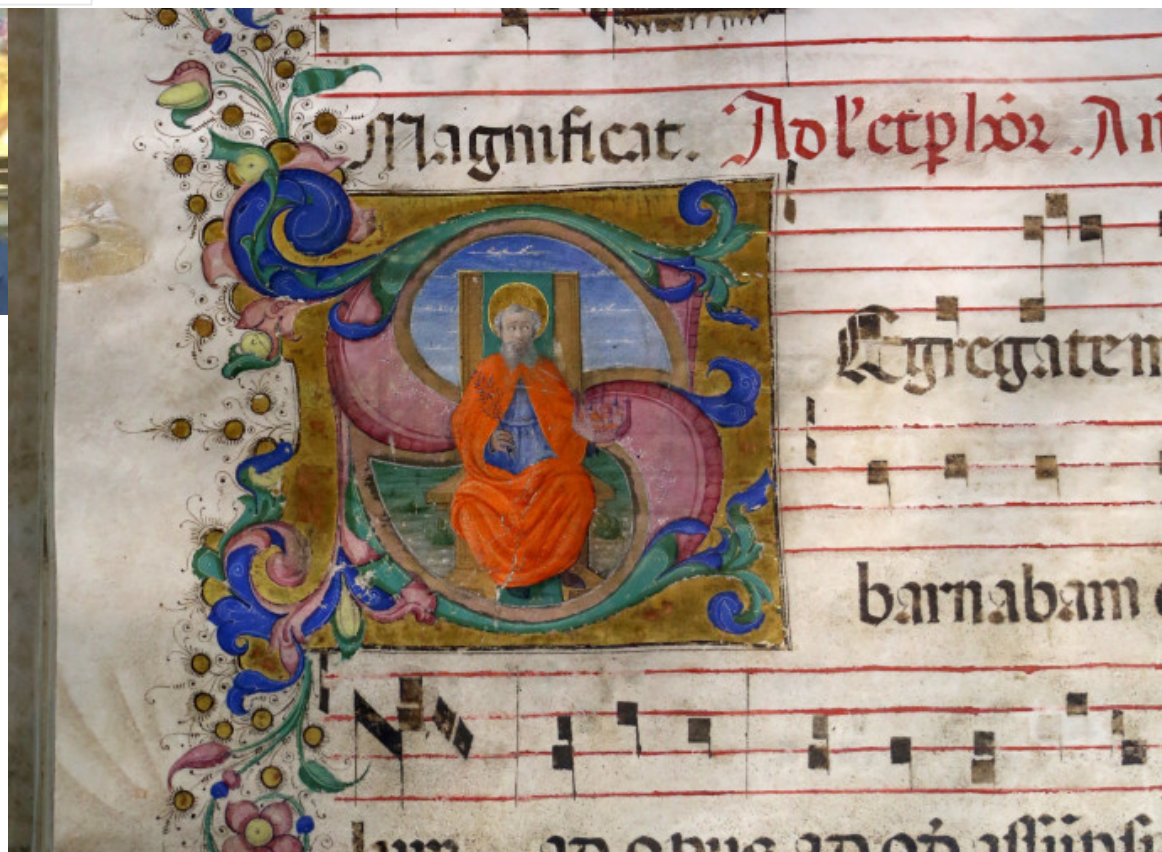 Magnificat. Ad l'et p hör. An
SEgregate m
barnabam
lum ad opus ad qđ assũpsi